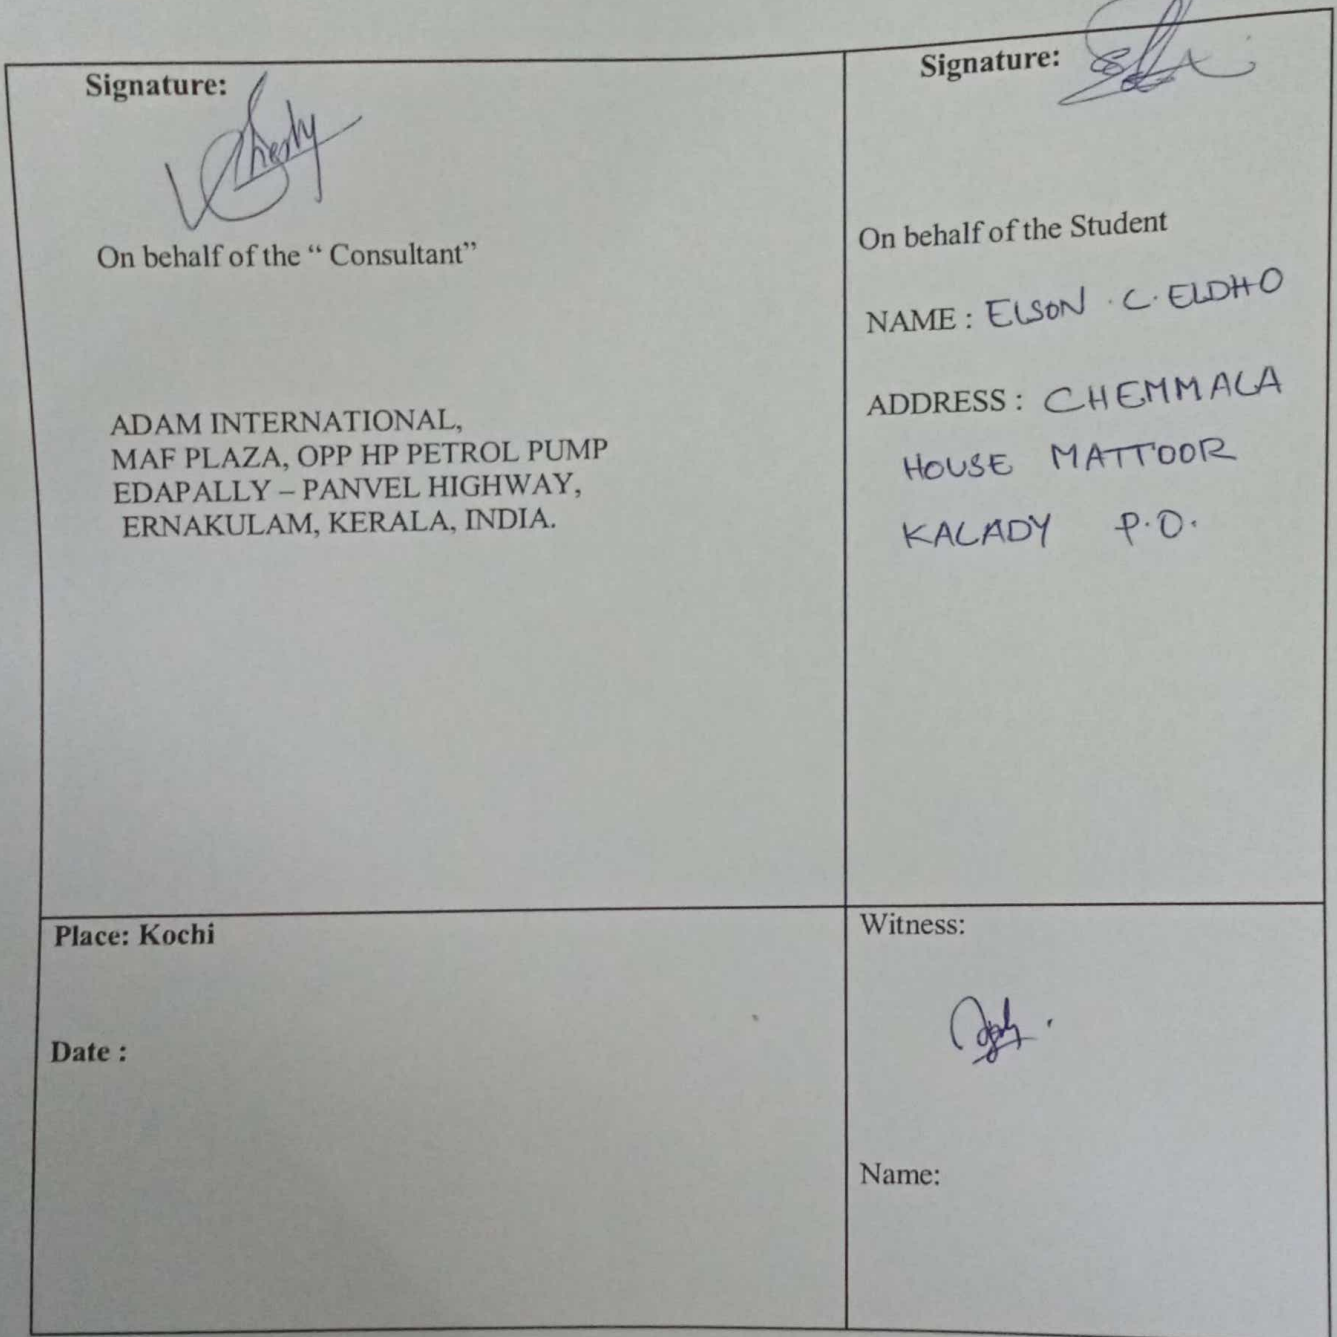 Signature:
On behalf of the “ Consultant”
ADAM INTERNATIONAL,
MAF PLAZA, OPP HP PETROL PUMP
EDAPALLY – PANVEL HIGHWAY,
ERNAKULAM, KERALA, INDIA.
Signature:
On behalf of the Student
NAME : ELSON . C. ELDHO
ADDRESS : CHEMMALA
HOUSE MATTOOR
KALADY P.O.
Place: Kochi
Date :
Witness:
Name: